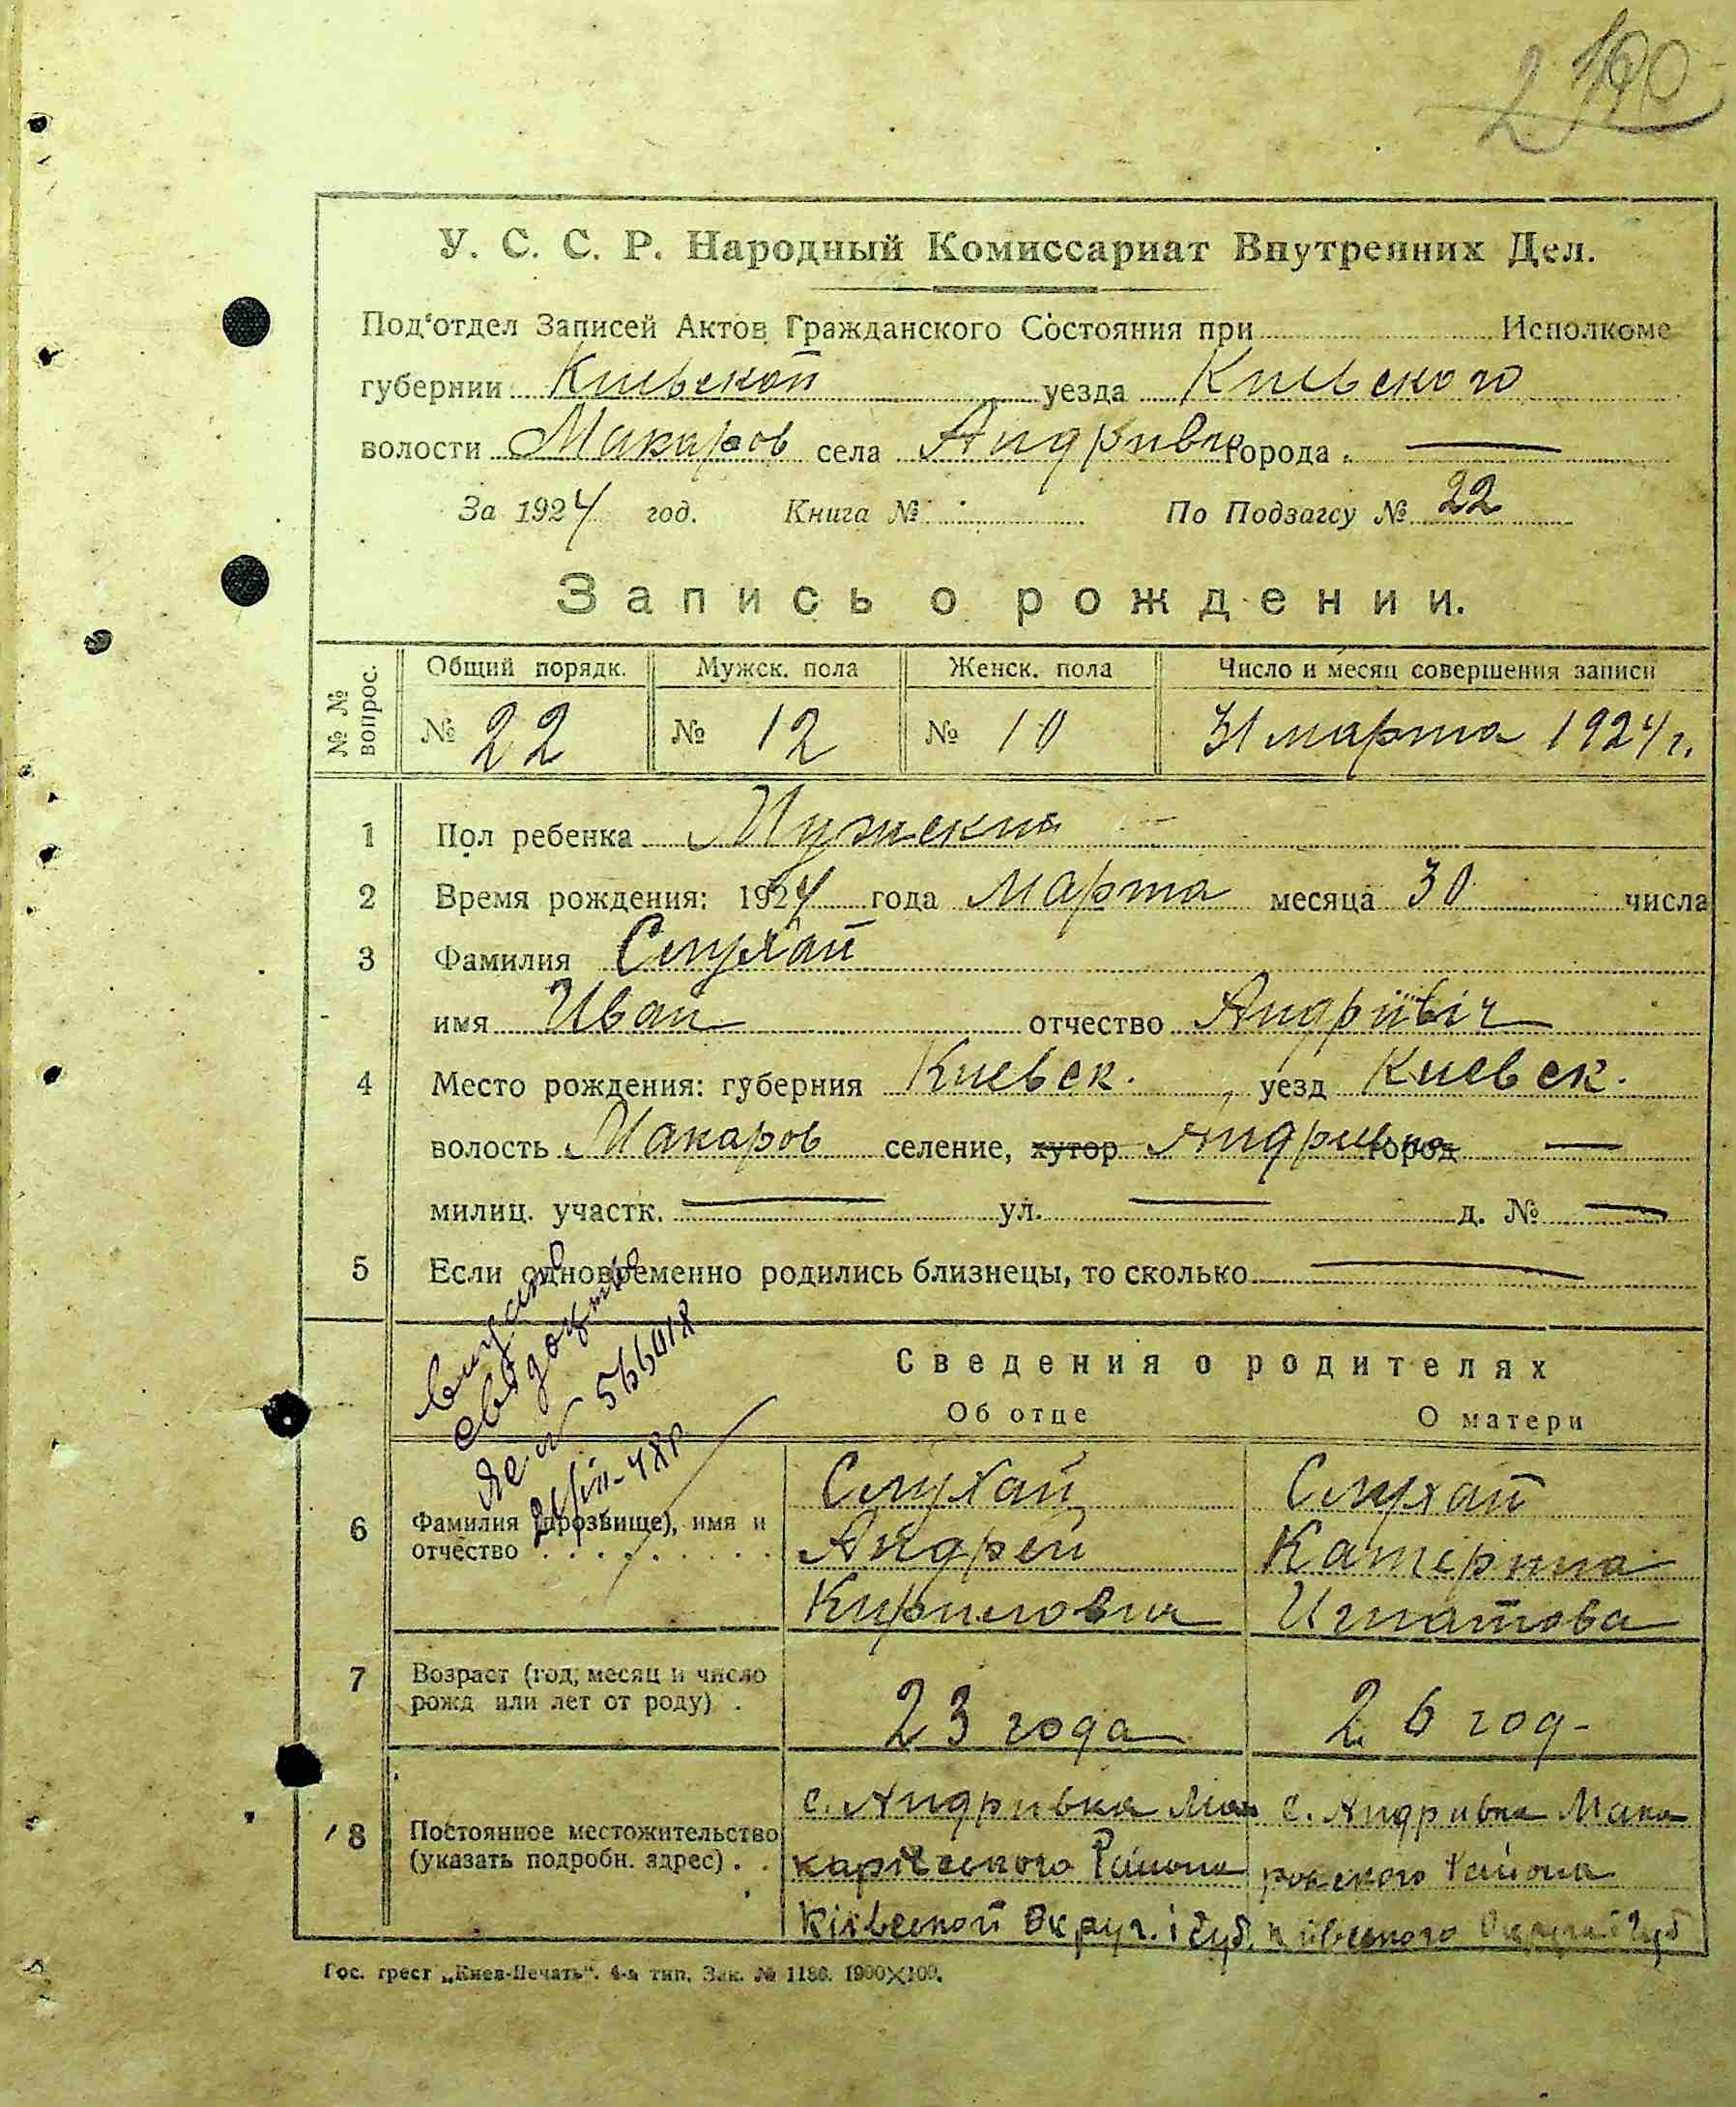 У. С. С. Р. Народный Комиссариат Внутренних Дел.
Под'отдел Записей Актов Гражданского Состояния при Исполкоме
губернии Киевской уезда Киевского
волости Макаров села Андривка города —
За 1924 год. Книга № По Подзагсу № 22
Запись о рождении.
№ № вопрос. Общий порядк. Мужск. пола Женск. пола Число и месяц совершения записи
№ 22 № 12 № 10 31 марта 1924 г.
1 Пол ребенка Мужский
2 Время рождения: 1924 года Марта месяца 30 числа
3 Фамилия Слухай
имя Иван отчество Андриївіч
4 Место рождения: губерния Киевск. уезд Киевск.
волость Макаров селение, хутор Андривка город —
милиц. участк. — ул. — д. № —
5 Если одновременно родились близнецы, то сколько —
Сведения о родителях
Об отце О матери
6 Фамилия (прозвище), имя и отчество
Слухай Слухай
Андрей Катерина
Кирилович Игнатова
7 Возраст (год, месяц и число рожд или лет от роду) .
23 года 26 год-
8 Постоянное местожительство (указать подробн. адрес) . .
с. Андривка Ма с. Андривка Мака
Района ровского Района
Київской Округ. і губ. Київского Округа і Губ
Гос. трест „Киев-Печать“. 4-я тип. Зак. № 1186. 1900×100.